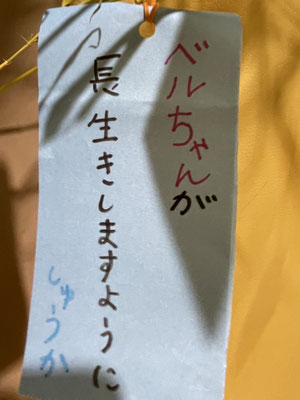 ベルちゃんが
長生きしますように
しゅうか